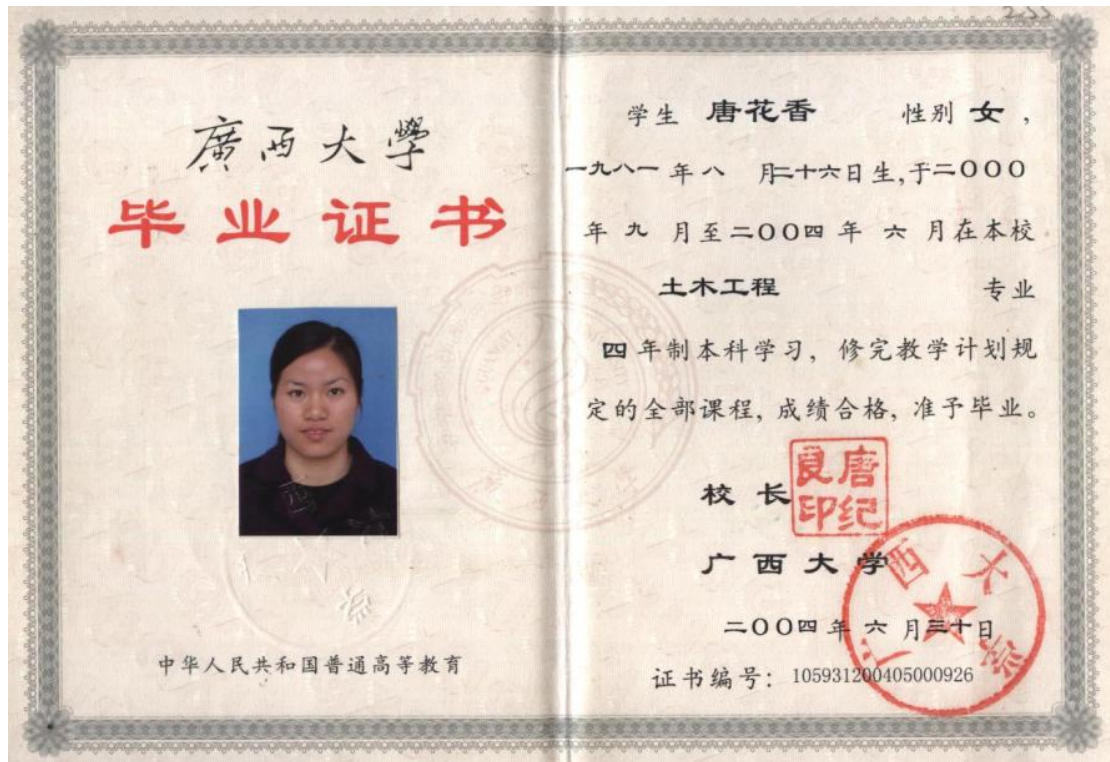 廣西大學
毕业证书
中华人民共和国普通高等教育
学生 唐花香 性别 女,
一九八一年八 月二十六日生,于二〇〇〇
年 九 月至二〇〇四年 六 月在本校
土木工程 专业
四年制本科学习, 修完教学计划规
定的全部课程, 成绩合格, 准予毕业。
校 长
唐纪良印
广西大学
二〇〇四年 六 月三十日
证书编号: 105931200405000926
广西大学